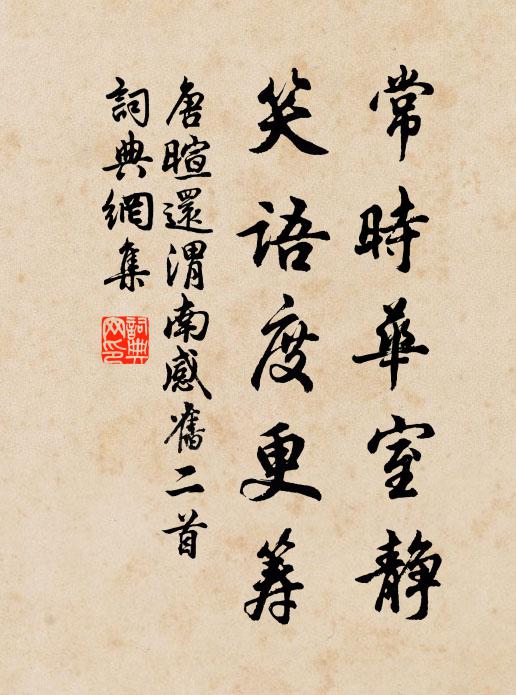 常時華室静
笑語度更筹
唐暄還渭南感舊二首
詞典網集
詞典
网印